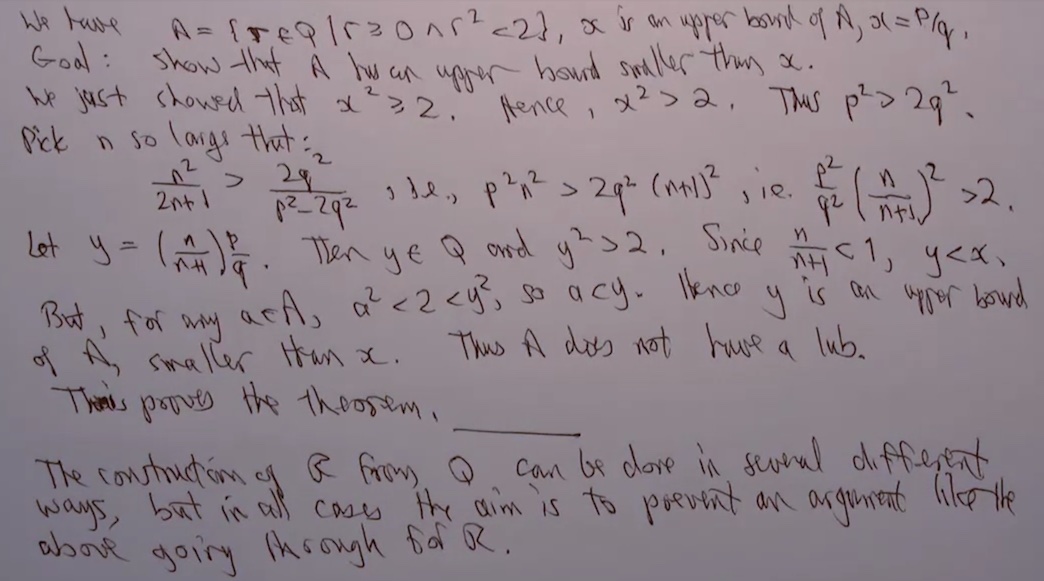 We have A = {r ∈ Q | r ≥ 0 ∧ r² < 2}, x is an upper bound of A, x = p/q.
Goal: show that A has an upper bound smaller than x.
We just showed that x² ≥ 2. Hence, x² > 2. Thus p² > 2q².
Pick n so large that:
n²/(2n+1) > 2q²/(p²-2q²), i.e., p²n² > 2q²(n+1)², i.e. p²/q² (n/(n+1))² > 2.
Let y = (n/(n+1)) p/q. Then y ∈ Q and y² > 2. Since n/(n+1) < 1, y < x.
But, for any a ∈ A, a² < 2 < y², so a < y. Hence y is an upper bound
of A, smaller than x. Thus A does not have a lub.
This proves the theorem.
The construction of R from Q can be done in several different
ways, but in all cases the aim is to prevent an argument like the
above going through for R.